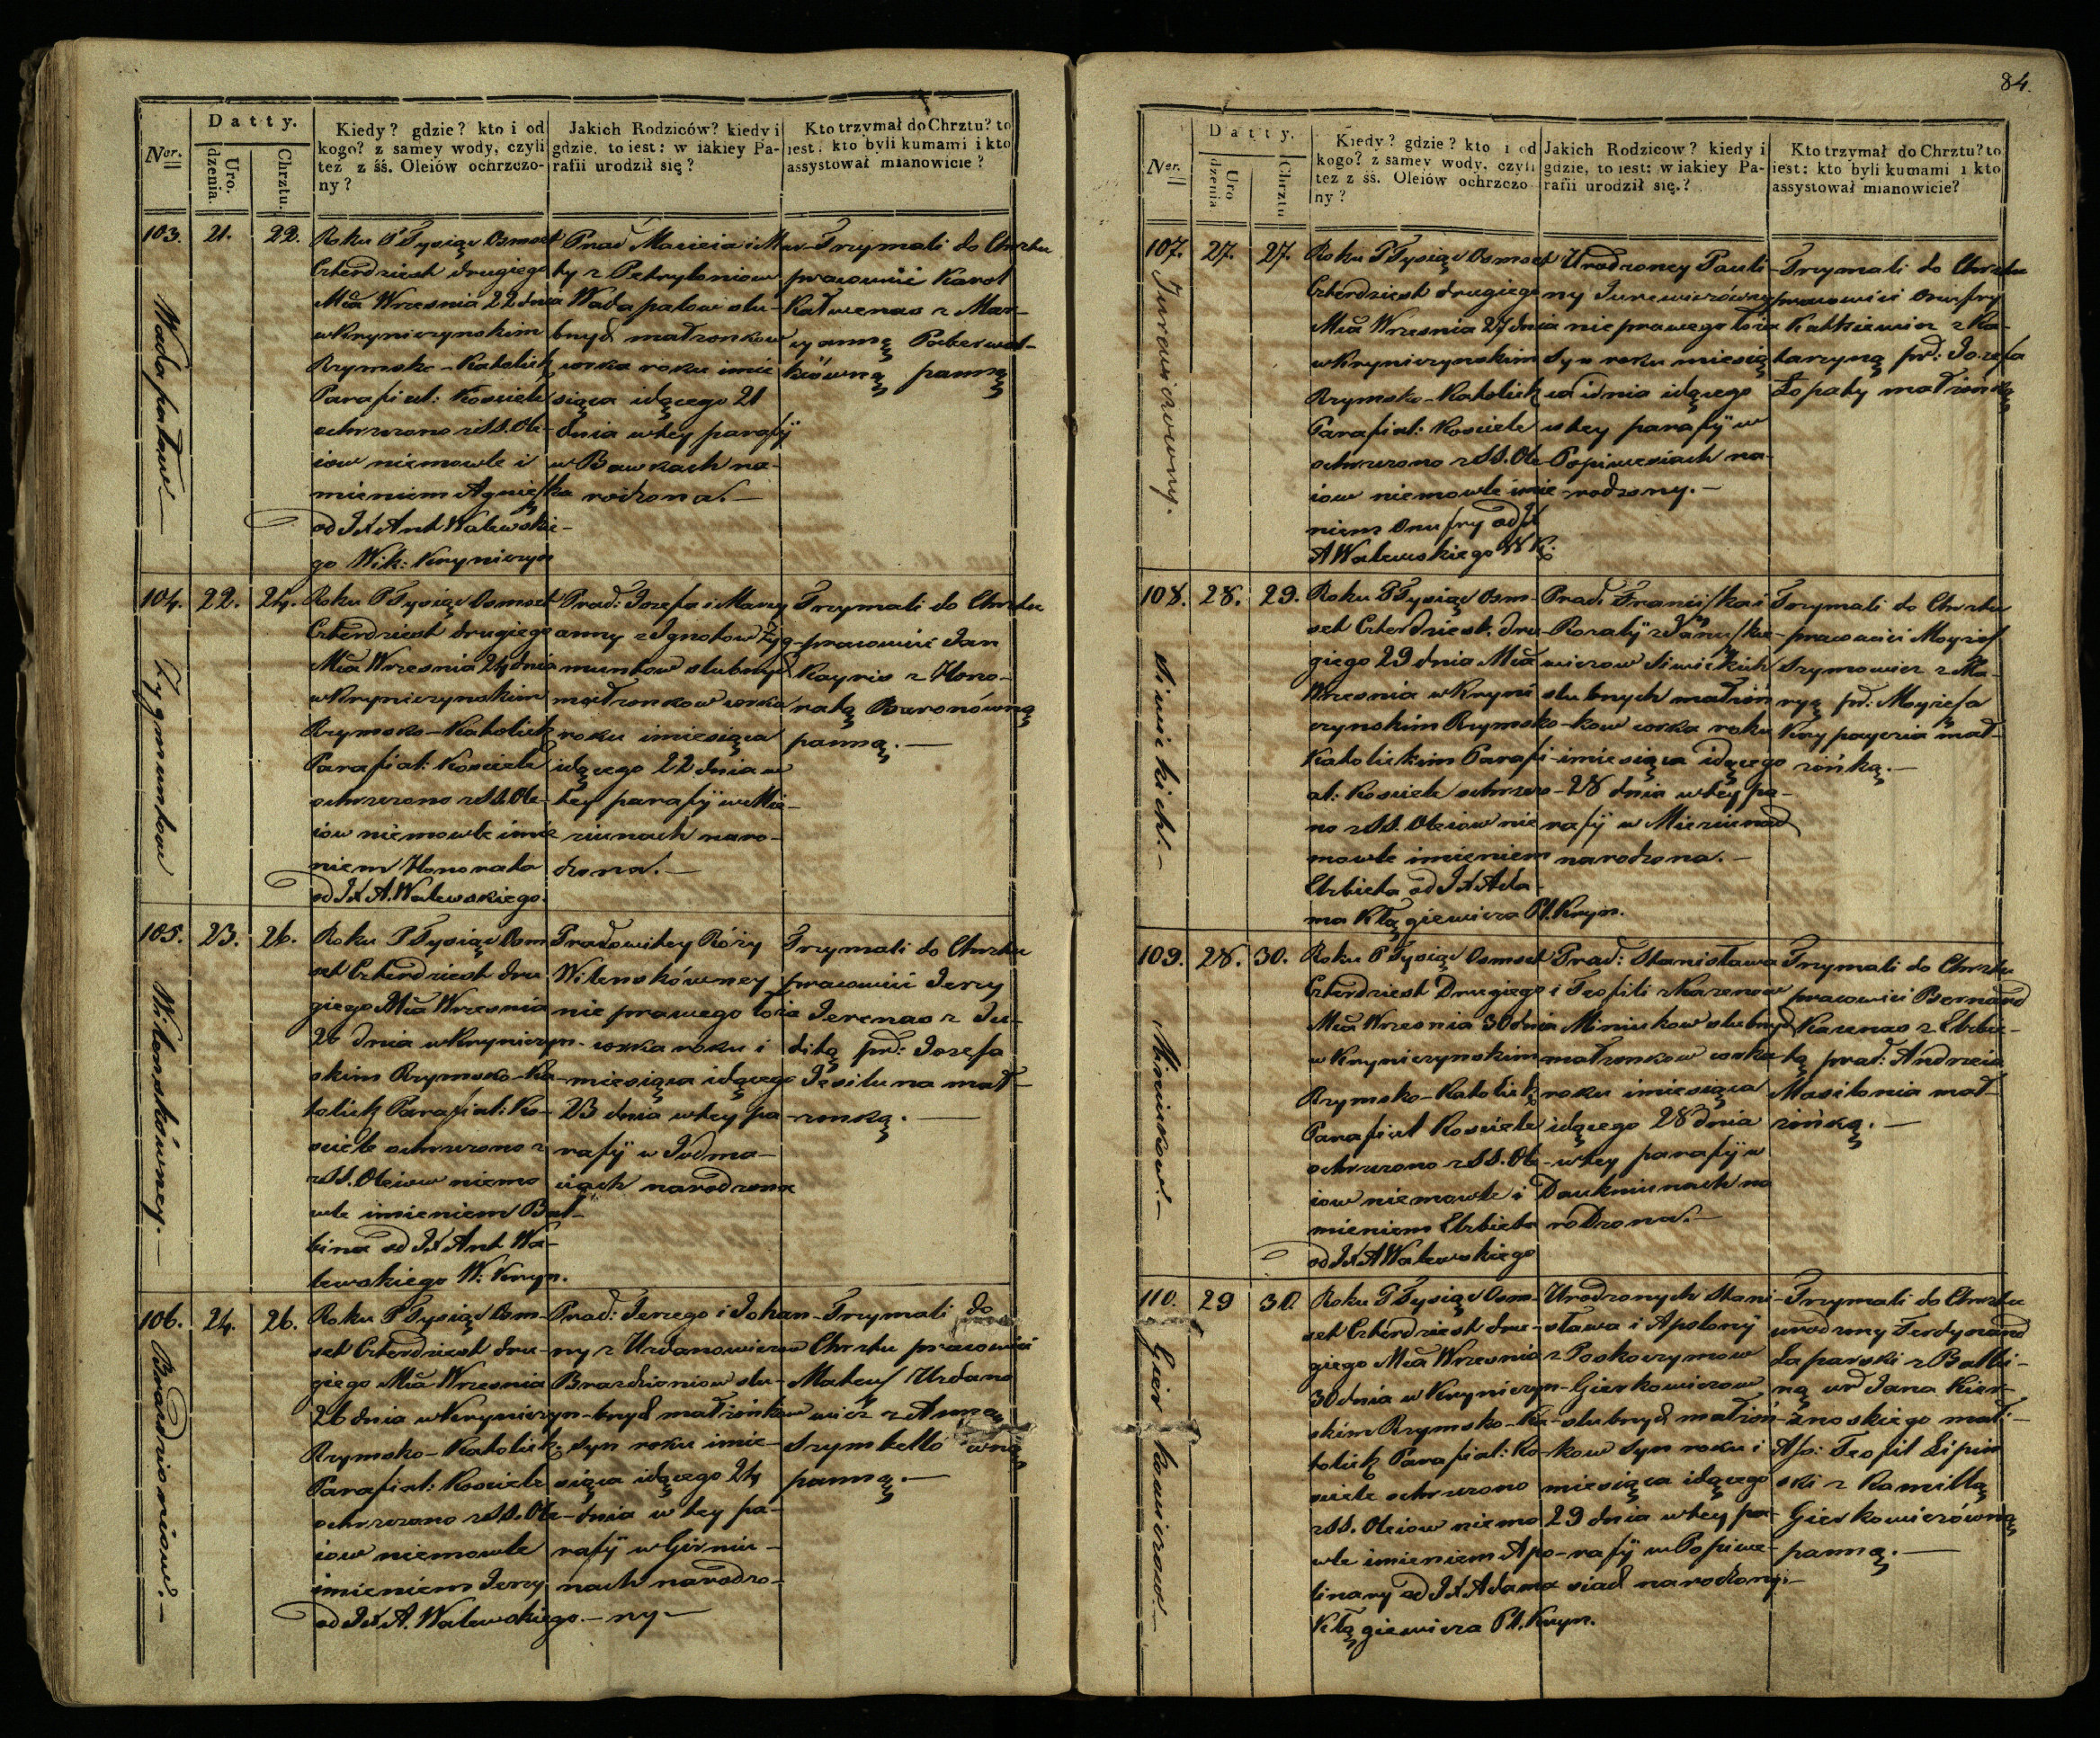 84.
Datty.
Ner.
Uro.
dzenia.
Chrztu.
Kiedy? gdzie? kto i od
kogo? z samey wody, czyli
tez z śś. Oleiów ochrzczo-
ny?
Jakich Rodziców? kiedy i
gdzie, to iest: w iakiey Pa-
rafii urodził się?
Kto trzymał do Chrztu? to
iest: kto byli kumami i kto
assystował mianowicie?
103.
21.
22.
Wadapałow
Roku P Tysiąc Osmset
Czterdziest drugiego
Mca Wrzesnia 22 dnia
w Kryniczynskim
Rzymsko-Katolick
Parafial: Kosciele
ochrzczono z SS. Ole-
iow niemowle i
mieniem Agnieszka
od JX Ant Walewskie-
go Wik: Kryniczyn
Prac Macieia i M
ty z Petrylaniow
Wadapałow slu-
bnych małzonkow
corka roku i mie
siąca idącego 21
dnia w tey parafij
w Bawkach na-
rodzona.
Trzymali do Chrztu
pracowici Karol
z Mar-
cyanną
panną
104.
22.
24.
Zygmuntow
Roku P Tysiąc Osmset
Czterdziest drugiego
Mca Wrzesnia 24 dnia
w Kryniczynskim
Rzymsko-Katolick
Parafial: Kosciele
ochrzczono z SS. Ole-
iow niemowle imie
niem Honorata
od JX A. Walewskiego.
Prac: Jozefa i Mary
anny z Ignotow Zyg-
muntow slubnych
małzonkow corka
roku i miesiąca
idącego 22 dnia w
tey parafij w Mie-
ziunach naro-
dzona.
Trzymali do Chrztu
pracowici Jan
Kayris z Hono-
ratą Baronówną
panną.
105.
23.
26.
Wilenskówney.
Roku P Tysiąc Osm
set Czterdziest dru
giego Mca Wrzesnia
26 dnia w Kryniczyn-
skim Rzymsko-Ka-
tolick Parafial: Ko-
sciele ochrzczono z
z SS. Oleiow niemo
wle imieniem Bal-
bina od JX Ant Wa-
lewskiego W: Kryn.
Pracowitey Róży
Wilenskówney
nie prawego łoża
corka roku i
miesiąca idącego
23 dnia w tey pa-
rafij w Podma-
ciach narodzona
Trzymali do Chrztu
pracowici Jerzy
Jerenas z Ju-
ditą pr: Jozefa
Jesiluna mał-
zonką.
106.
24.
26.
Brazdzioniow.
Roku P Tysiąc Osm-
set Czterdziest dru-
giego Mca Wrzesnia
26 dnia w Kryniczyn-
Rzymsko-Katolick
Parafial: Kosciele
ochrzczono z SS. Ole-
iow niemowle
imieniem Jerzy
od JX A. Walewskiego.
Prac: Jerzego i Johan-
ny z Urdanowiczow
Brazdzioniow slu-
bnych małżonkow
syn roku i mie-
siąca idącego 24
dnia w tey pa-
rafij w Girniu-
nach narodzo-
ny
Trzymali do
Chrztu pracowici
Mateusz Urdano
wicz z Anną
Szymkełło wną
panną.
Datty.
Ner.
Uro
dzenia
Chrztu
Kiedy? gdzie? kto i od
kogo? z samey wody, czyli
tez z śś. Oleiów ochrzczo
ny?
Jakich Rodziców? kiedy i
gdzie, to iest: w iakiey Pa-
rafii urodził się?
Kto trzymał do Chrztu? to
iest: kto byli kumami i kto
assystował mianowicie?
107.
27.
27.
Roku P Tysiąc Osmset
Czterdziest drugiego
Mca Wrzesnia 27 dnia
w Krynicznynskim
Rzymsko-Katolick
Parafial: Kosciele
ochrzczono z SS. Ole
iow niemowle imie
niem Onufry od JX
A Walewskiego W K:
Urodzoney Pauli-
ny Jurewiczówney
nie prawego łoża
syn roku miesią
ca i dnia idącego
w tey parafij w
Popiwesiach na-
rodzony.
Trzymali do Chrztu
pracowici Onufry
z Ka-
tarzyną pr: Jozefa
Łopaty małżonką
108.
28.
29.
Siwickich.
Roku P Tysiąc Osm-
set Czterdziest dru-
giego 29 dnia Mca
Wrzesnia w Kryni
czynskim Rzymsko-
Katolickim Parafi-
al: Kosciele ochrzczo-
no z SS. Oleiow nie
mowle imieniem
Elzbieta od JX Ada-
ma Kłągiewicza Pl. Kryn.
Prac. Franciszka i
Rozalij z Januszkie-
wiczow Siwickich
slubnych małżon
kow corka roku
i miesiąca idącego
28 dnia w tey pa-
rafij w Mieziunach
narodzona.
Trzymali do Chrztu
pracowici Moyzesz
Szymowicz z Ma-
ryą pr: Moyzesza
mał-
żonką.
109.
28.
30.
Miniukow.
Roku P Tysiąc Osmset
Czterdziest Drugiego
Mca Wrzesnia 30 dnia
w Krynicznynskim
Rzymsko-Katolick
Parafial Kosciele
ochrzczono z SS. Ole-
iow niemowle i
mieniem Elzbieta
od JX A Walewskiego
Prac: Stanisława
i Teofili z Karenow
Miniukow slubnych
małzonkow corka
roku i miesiąca
idącego 28 dnia
w tey parafij w
Daukniunach na
rodzona.
Trzymali do Chrztu
pracowici Bernard
Karenas z Elzbie-
tą prac: Andrzeia
Masilonia mał-
żonką.
110.
29
30
Gierkowiczow
Roku P Tysiąc Osm-
set Czterdziest dru-
giego Mca Wrzesnia
30 dnia w Kryniczyn-
skim Rzymsko-Ka-
tolick Parafial: Ko-
sciele ochrzczono
z SS. Oleiow niemo
wle imieniem Apo-
linary od JX Adama
Kłągiewicza Pl. Kryn.
Urodzonych Stani-
sława i Apolony
z Poskoczymow
Gierkowiczow
slubnych małżon-
kow syn roku i
miesiąca idącego
29 dnia w tey pa-
rafij w Popiwe-
siach narodzony.
Trzymali do Chrztu
urodzony Ferdynand
Łaparski z Balbi-
ną ur Jana Kier-
znoskiego mał:
Ass: Teofil Lipin
ski z Kamillą
Gierkowiczówną
panną.